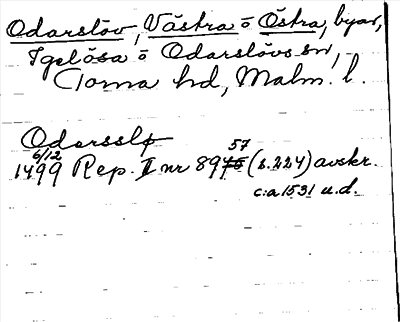 Odarslöv, Västra o Östra, byar,
Igelösa o Odarslövs sn,
Torna hd, Malm. l.
Odersslø
6/12 57
1499 Rep. II nr 8945 (s. 224) avskr.
c:a 1531 u.d.